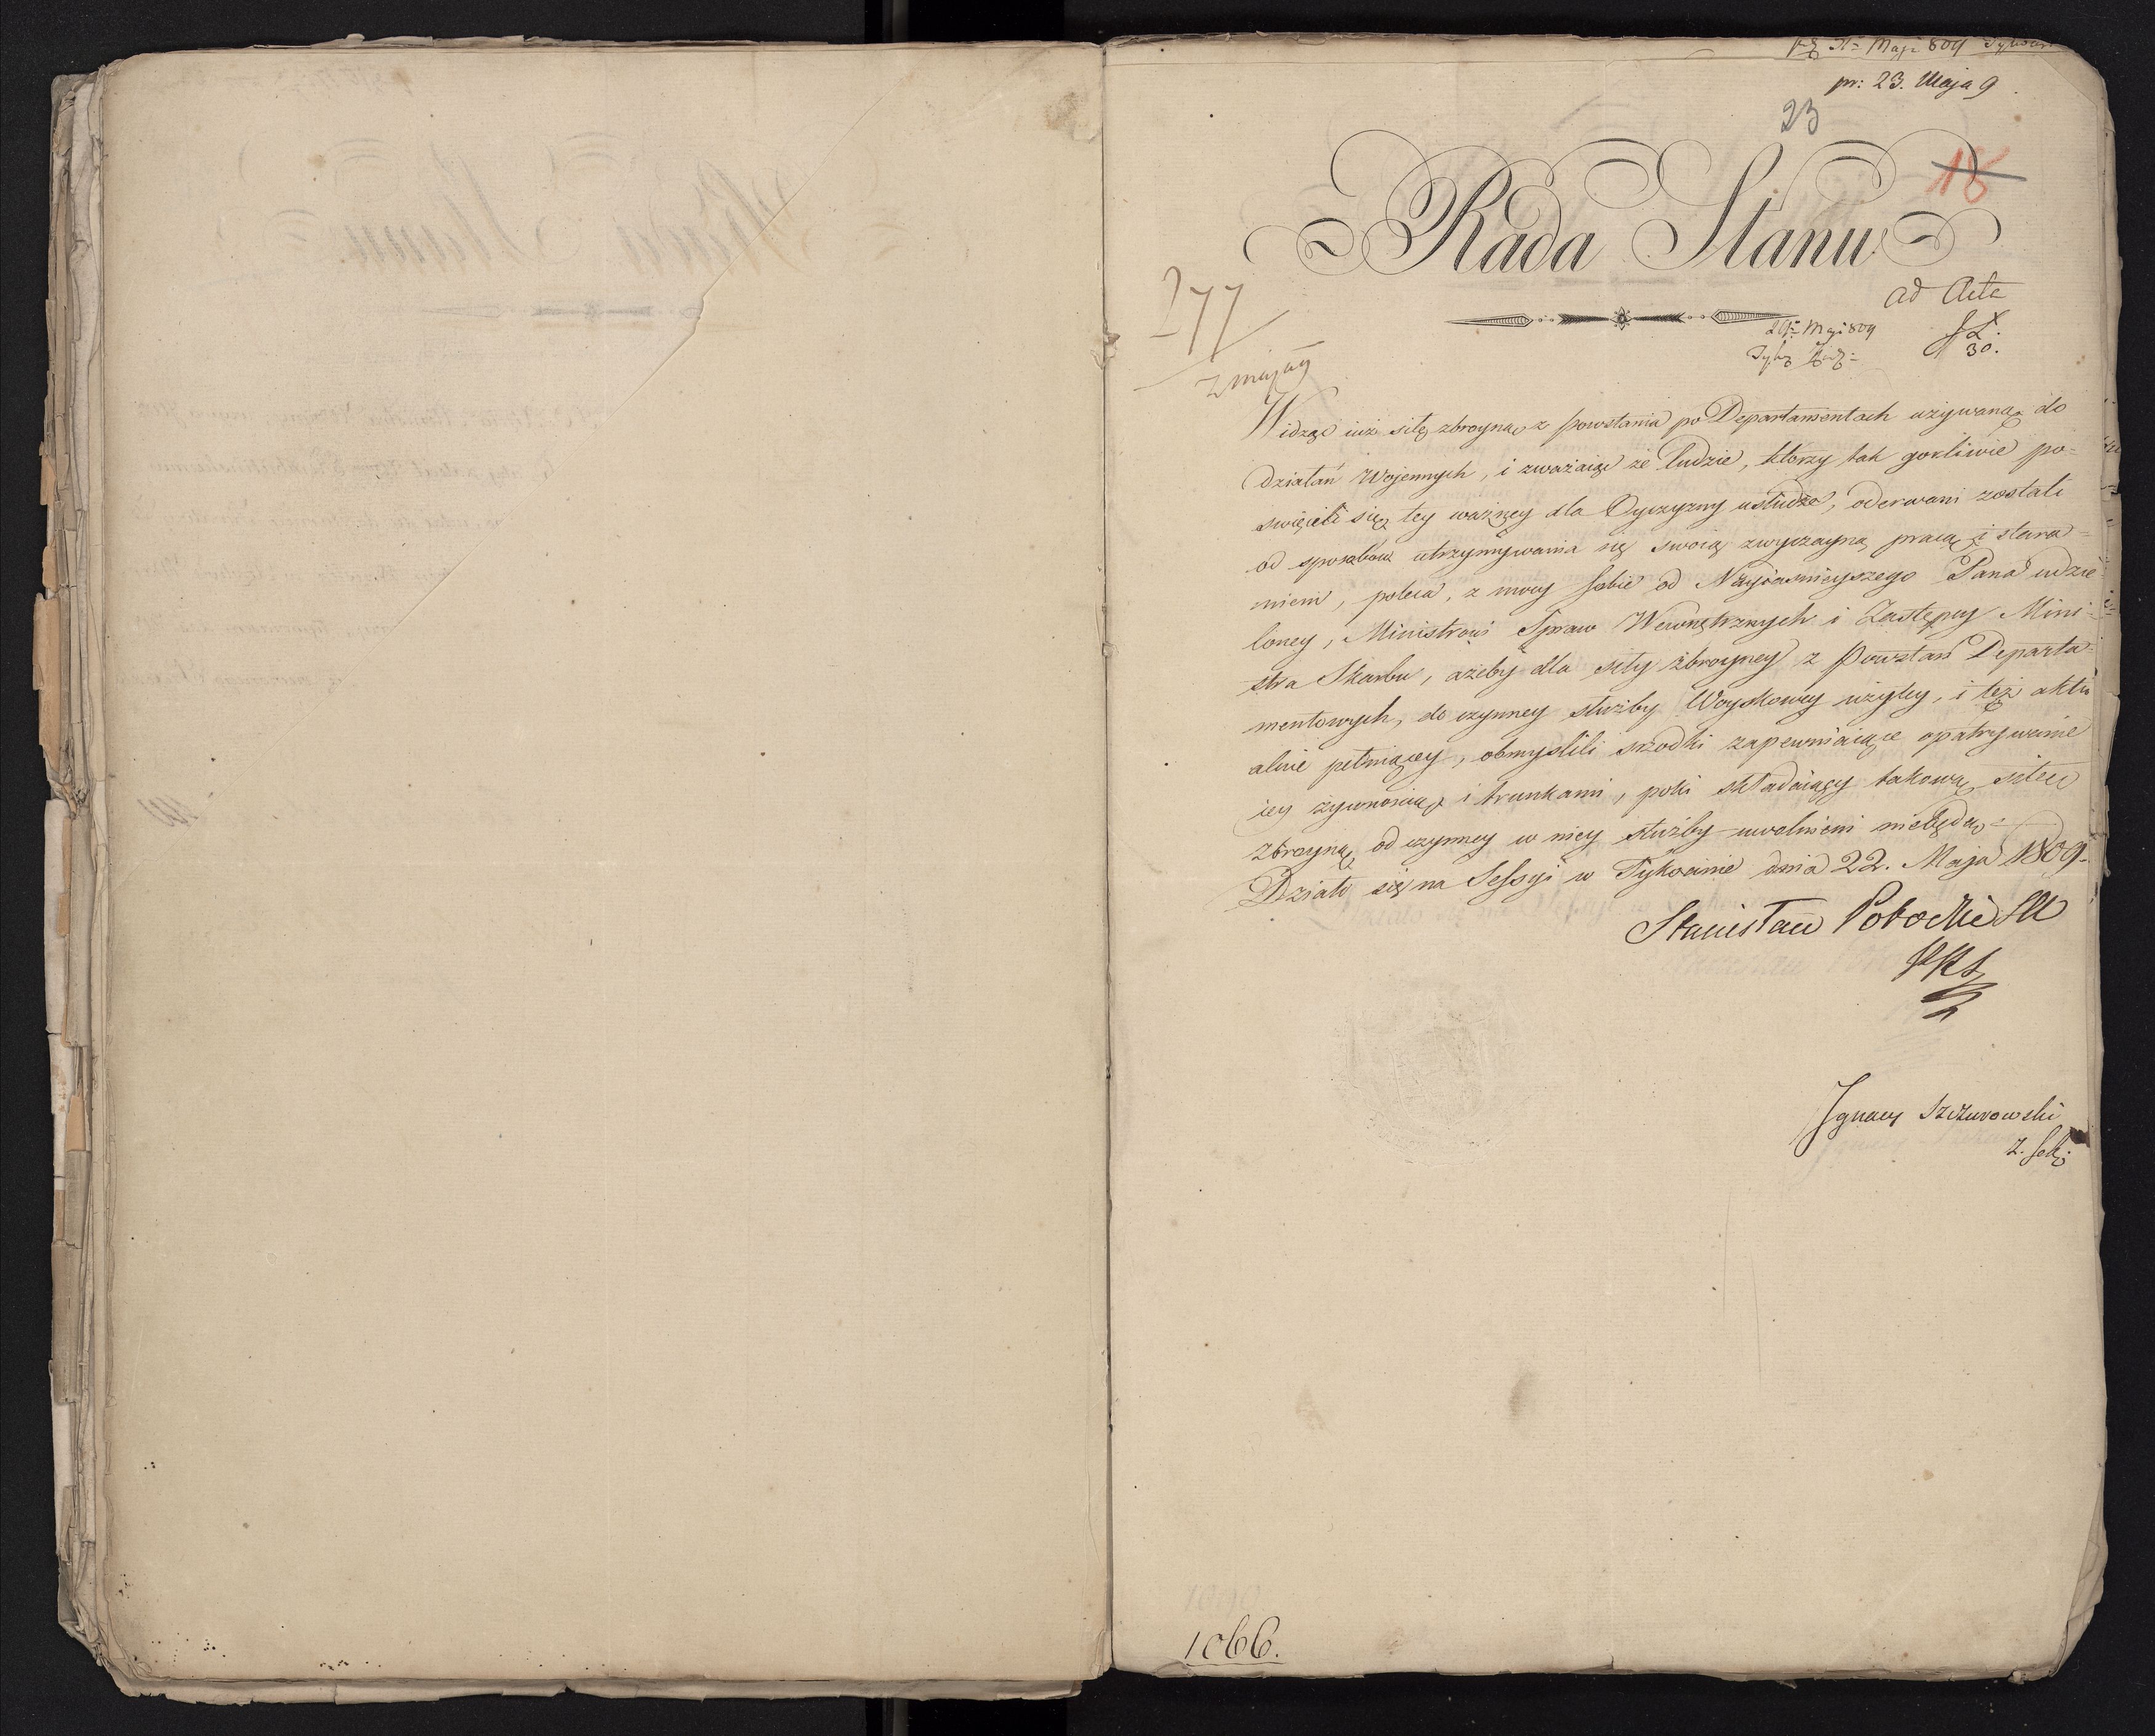 pr: 23. Maja 9
23
18
Rada Stanu
ad Acta
277
29 Maji 809
30.
z maja 9
Widząc iuż siłę zbroyną z powstania po Departamentach używaną do
działań Wojennych, i zważaiąc że ludzie, którzy tak gorliwie po-
święcili się tey ważney dla Oyczyzny usłudze, oderwani zostali
od sposobów utrzymywania się swoią zwyczayną pracą i stara-
niem, poleca, z mocy sobie od Nayiaśnieyszego Pana udzie-
loney, Ministrowi Spraw Wewnętrznych i Zastępcy Mini-
stra Skarbu, ażeby dla siły zbroyney z Powstań Departa-
mentowych, do czynney służby Woyskowey użytey, i też aktu-
alnie pełniącey, obmyślili srzodki zapewniaiące opatrywanie
iey żywnością i trunkami, póki składaiący takową siłę
zbroyną, od czynney w niey służby uwolnieni niebędą.
Działo się na Sessyi w Tykocinie dnia 22. Maja 1809.
Stanisław Potocki
Ignacy Szczurowski
z. Sekr:
1066.